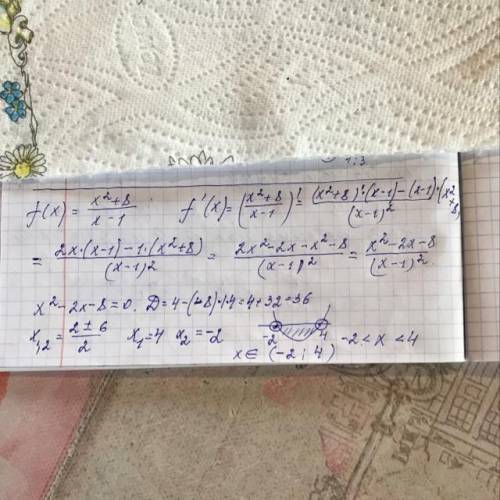 1:3
f(x) = \frac{x^2+8}{x-1} f'(x) = \left(\frac{x^2+8}{x-1}\right)' = \frac{(x^2+8)'·(x-1)-(x-1)'(x^2+8)}{(x-1)^2}
= \frac{2x·(x-1)-1·(x^2+8)}{(x-1)^2} = \frac{2x^2-2x-x^2-8}{(x-1)^2} = \frac{x^2-2x-8}{(x-1)^2}
x^2-2x-8=0. D=4-(-8)·1·4=4+32=36
x_{1,2} = \frac{2±6}{2} x_1=4 x_2=-2 -2 4 -2<x<4
x∈(-2;4)